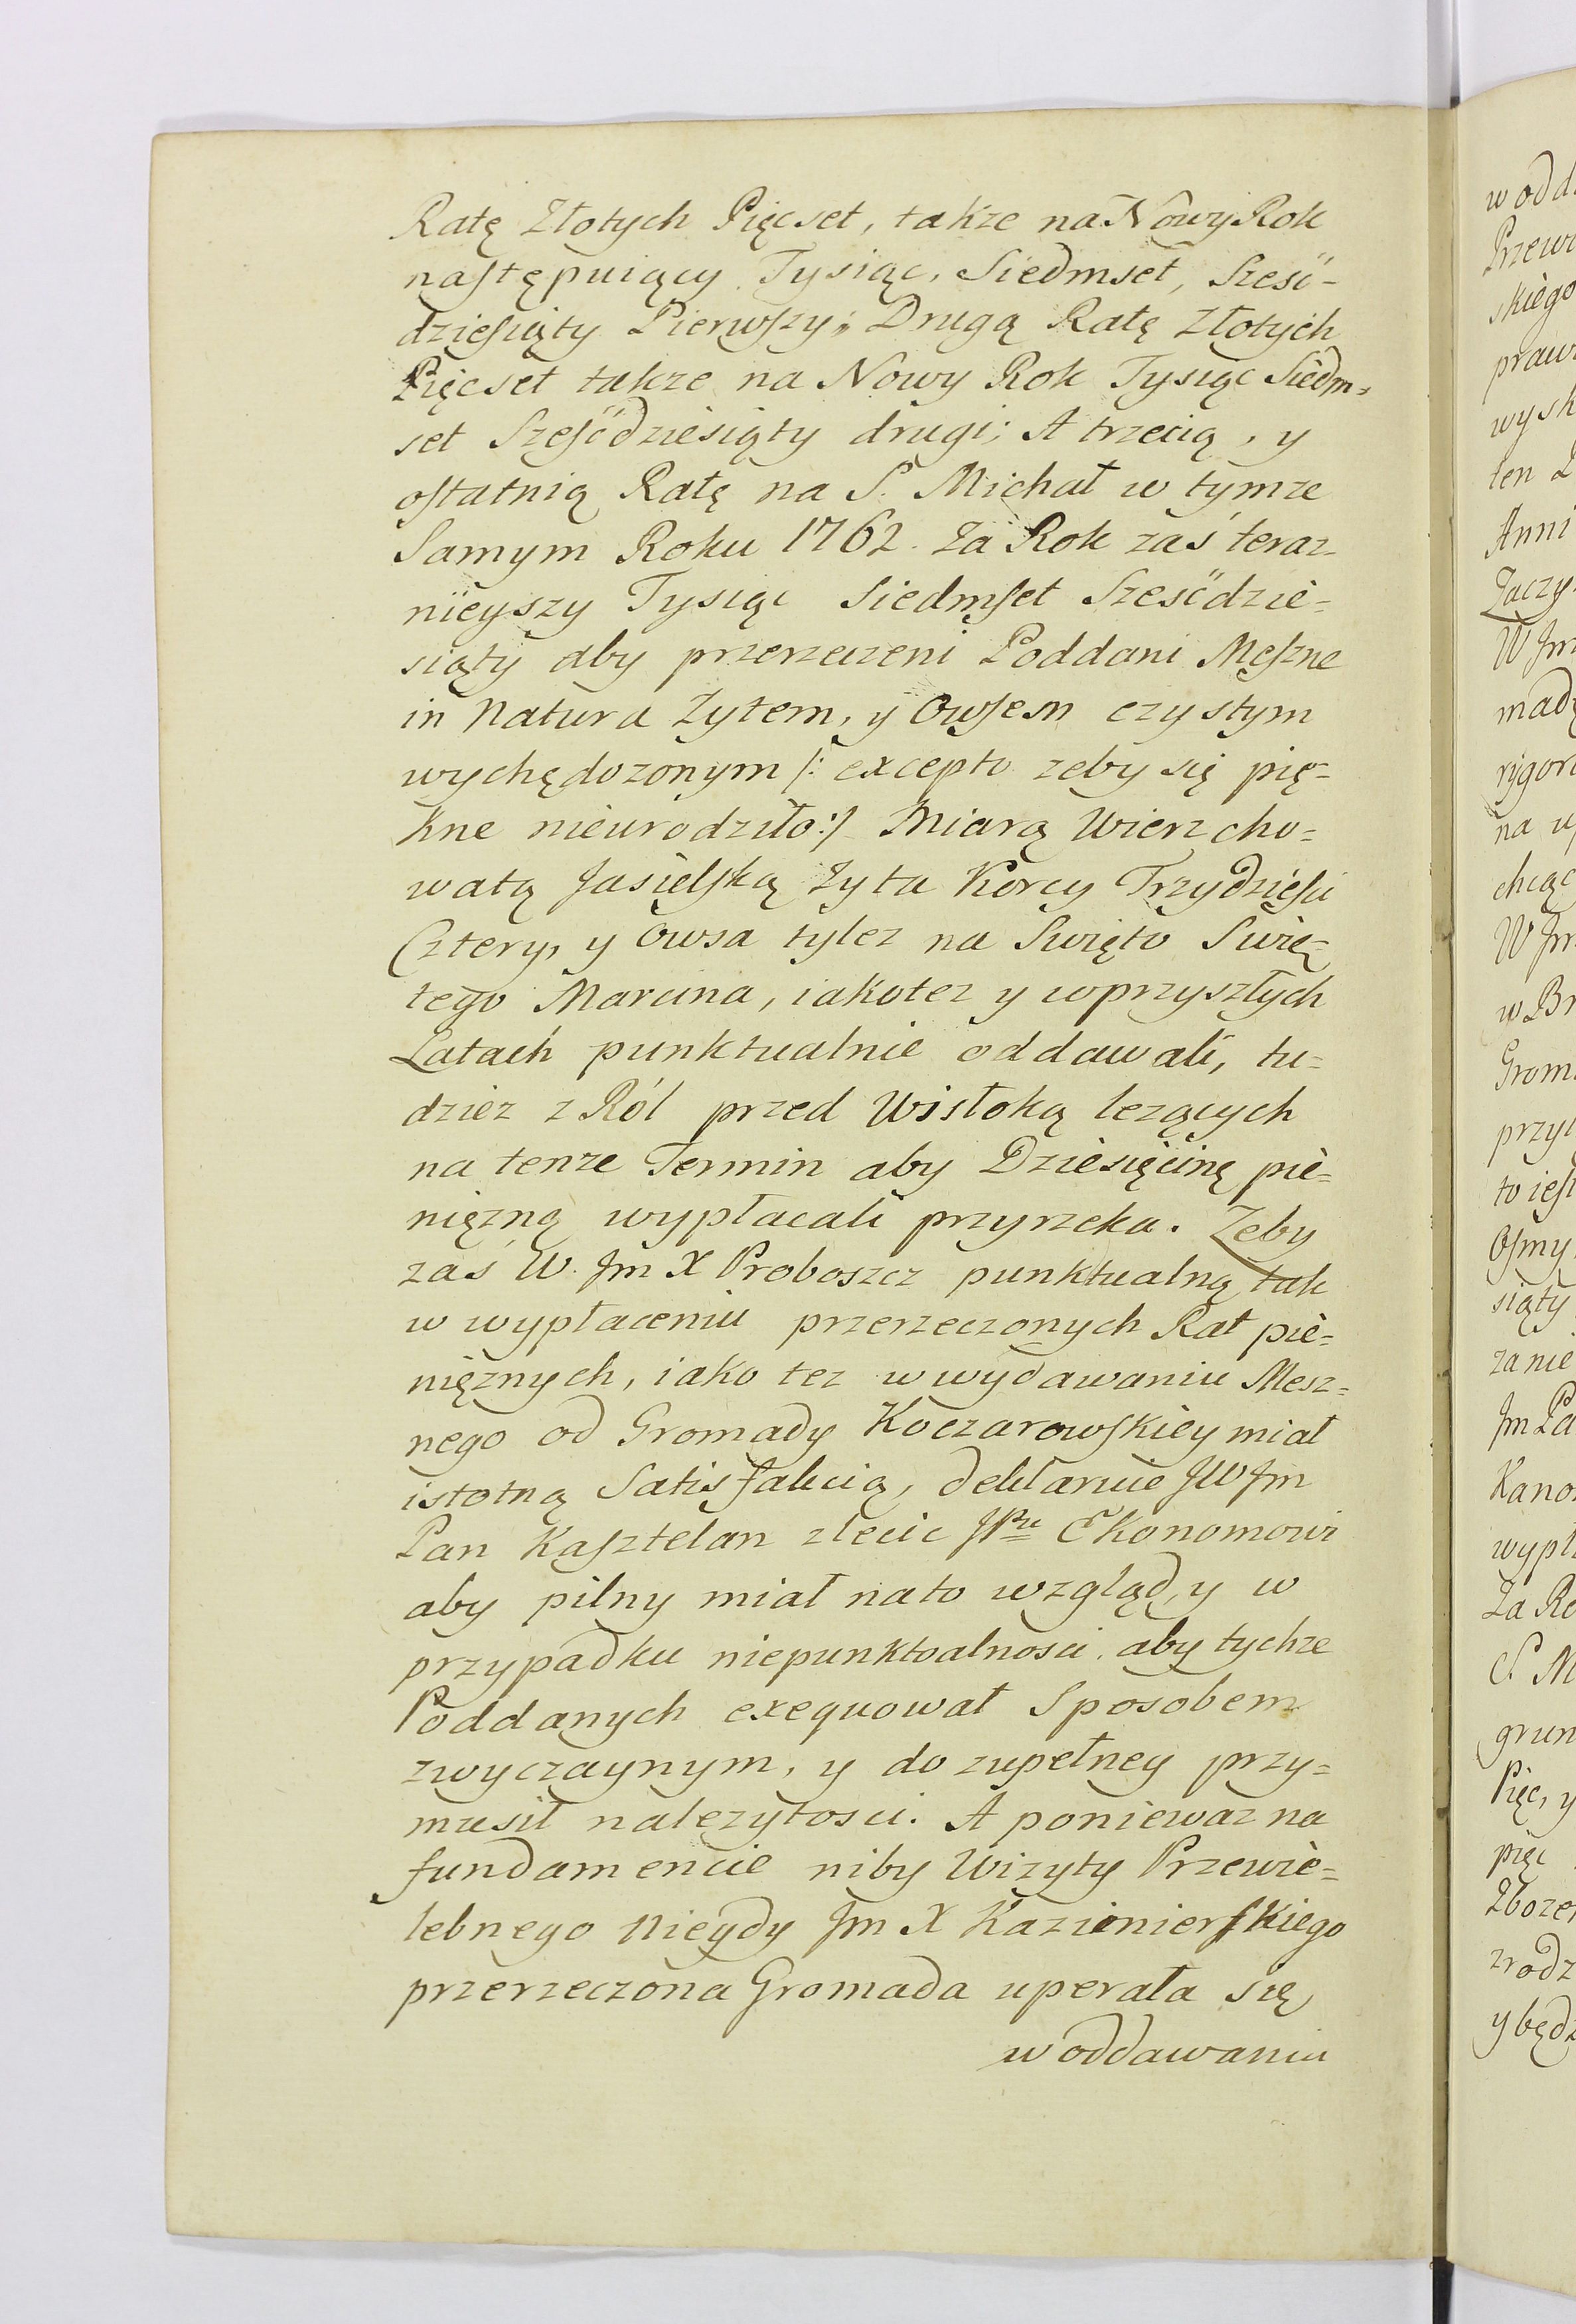 Ratę Złotych Pięcset, takze na Nowy Rok
naſtępuiący Tysiąc, Siedmset, Sześć-
dzieſiąty Pierwſzy; Drugą Ratę Złotych
Pięcset takze na Nowy Rok Tysiąc Siedm=
set Szeſćdziesiąty drugi; A trzecią, y
oſtatnią Ratę na S. Michał w tymze
Samym Roku 1762. Za Rok zaś teraz-
nieyszy Tysiąc Siedmſet Sześćdzie=
siąty aby przerzeczeni Poddani Meſzne
in Natura Zytem, y Owſem czystym
wychędozonym /: excepto zeby się pię=
kne nieurodziło:/ Miarą Wierzcho=
watą Jasielſką Zyta Korcy Trzydzieſci
Cztery, y Owsa tylez na Swięto Swię=
tego Marcina, iakotez y wprzyszłych
Latach punktualnie oddawali, tu=
dziez z Ról przed Wisłoką lezących
na tenze Termin aby Dziesięcinę pie=
nięzną wypłacali przyrzeka. Zeby
zaś W. Jm X Proboszcz punktualną tak
w wypłaceniu przerzeczonych Rat pie=
nięznych, iako tez w wydawaniu Mesz=
nego od Gromady Koczarowſkiey miał
istotną Satisfakcią, deklaruie JW Jm
Pan Kaſztelan zlecic JPu Ekonomowi
aby pilny miał nato wzgląd, y w
przypadku niepunktoalnosci, aby tychze
Poddanych exequował Sposobem
zwyczaynym, y do zupełney przy=
musił nalezytosci. A poniewaz na
fundamencie niby Wizyty Przewie=
lebnego Niegdy Jm X Kazimierſkiego
przerzeczona Gromada uperała się
w oddawaniu
w odd
Przew
skiego
praw
wysk
ten
Anni
Zaczy
W Jm
mad
rigor
na u
chcąc
W Jm
w Br
Grom
przy
to ieſ
Oſmy
siąty
za nie
Jm Pa
Kano
wypł
Za Ro
S. M
grun
Pięc, y
pięc
Zboze
zrodz
y będz